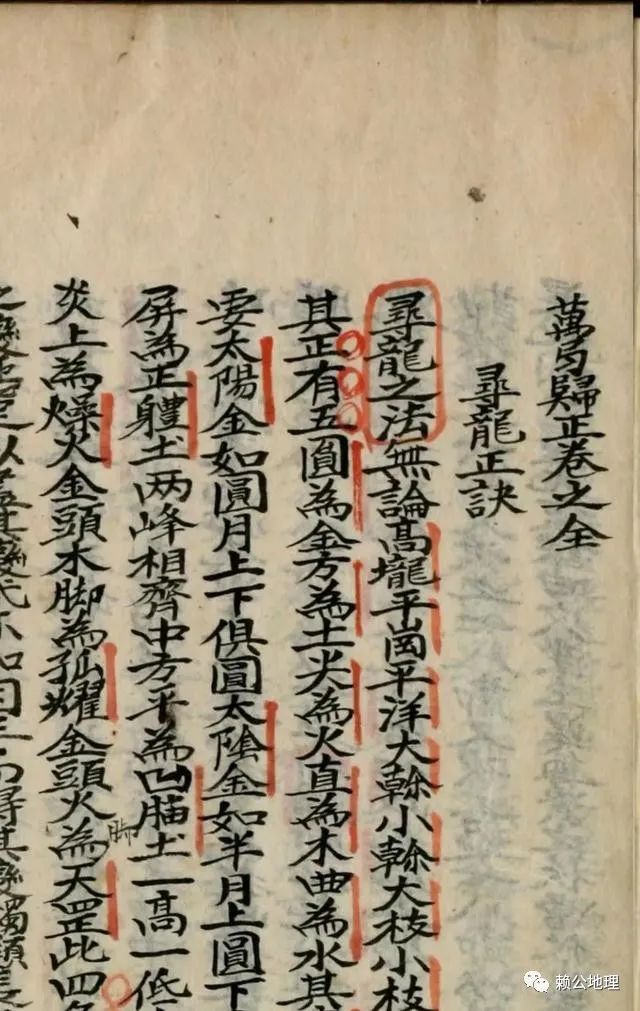 萬䓁歸正卷之全
尋龍正訣
尋龍之法無論高壠平崗平洋大幹小幹大枝小枝
其正有五圓為金方為土尖為火直為木曲為水其
要太陽金如圓月上下俱圓太陰金如半月上圓下
屏為正體土两峰相齊中方平為凹腦土一高一低
炎上為燥火金頭木脚為孤耀金頭火脚為天罡此四
賴公地理